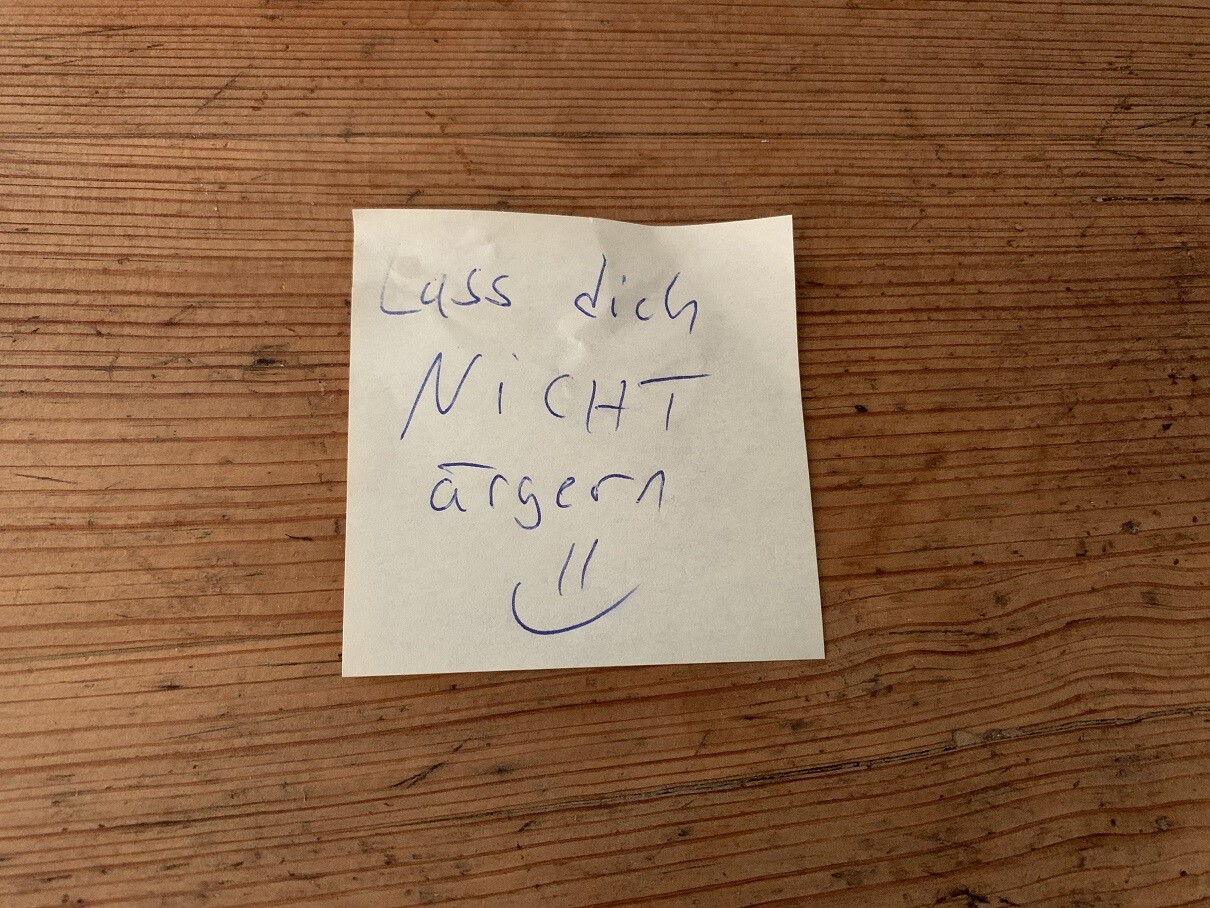 Lass dich
NiCHT
ärgern